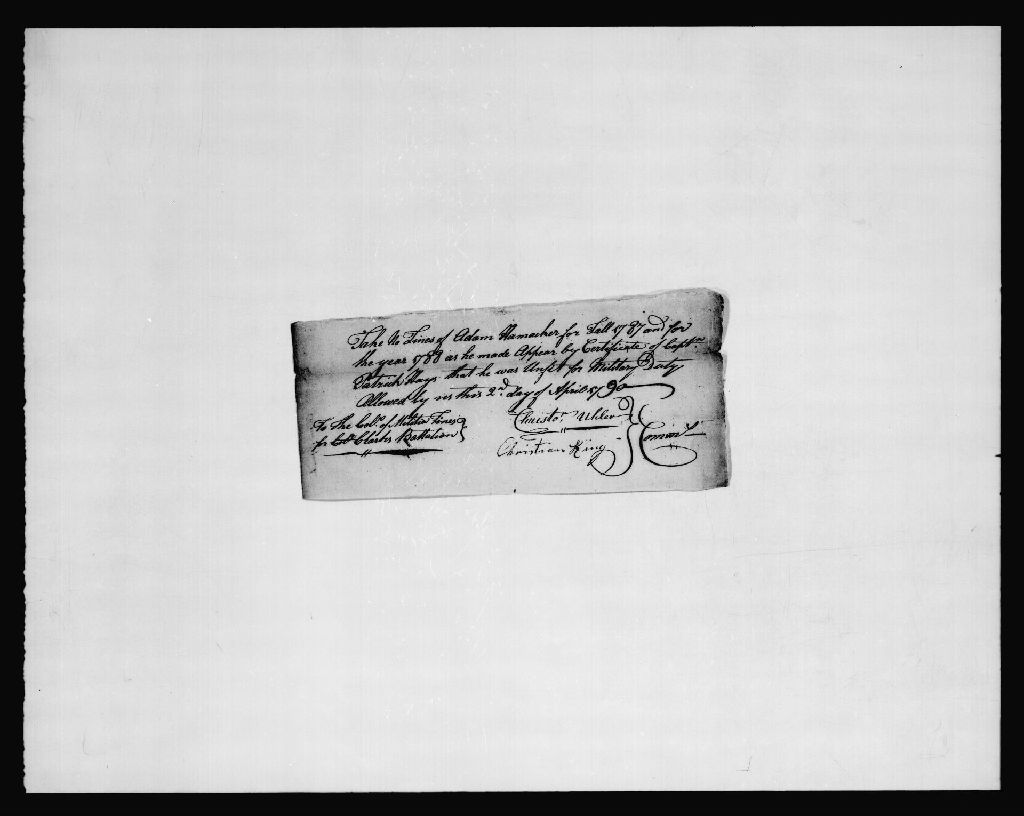 Take No Fines of Adam Hamacher for Fall 1787 and for
the year 1788 as he made Appear by Certificate of Captn
Patrick Hays that he was Unfit for Military Duty
Allowed by us this 2d day of April 1790
To The Colr. of Militia Fines
for Col. Clarks Battalion
Christor.
Christian King